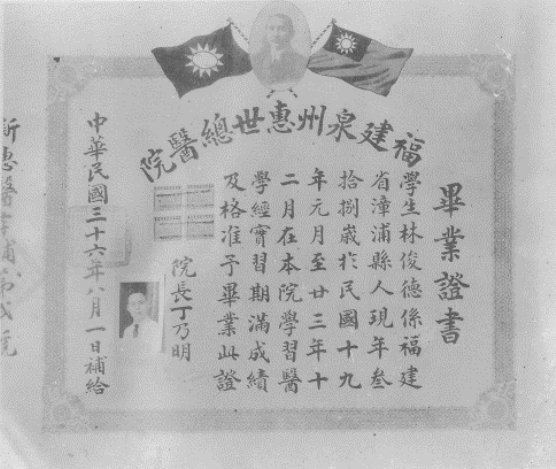 福建泉州惠世總醫院
畢業證書
學生林俊德係福建
省漳浦縣人現年叁
拾捌歲於民國十九
年元月至廿三年十
二月在本院學習醫
學經實習期滿成績
及格准予畢業此證
院長丁乃明
中華民國三十六年八月一日補給